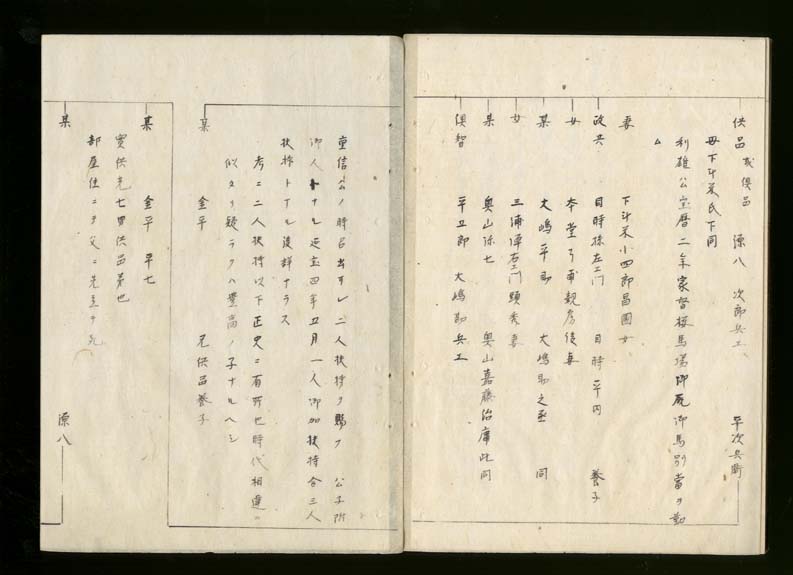 供品 或俱品 源八 次郎兵エ 平次兵衛
母下斗米氏下同
利雄公宝暦二年家督桜馬場御厩御馬別當ヲ勤
妻 下斗米小四郎昌國女
政共 目時孫左エ門 目時平内 養子
女 本堂 親房後妻
某 大嶋平助 大嶋助之丞 同
女 三浦 右エ門頭秀妻
某 奥山弥七 奥山嘉藤治庫此同
俱智 平五郎 大嶋勘兵エ
重信公ノ時召出サレ二人扶持ヲ賜フ 公子附
御人トナル延宝四年五月一人御加扶持合三人
扶持トナル後詳ナラス
考ニ二人扶持以下正史ニ有所也時代相違ニ
似タリ疑ラクハ豊高ノ子ナルヘシ
某 金平 兄供品養子
某 金平 平七
實供先七男供品弟也
部屋住ニテ父ニ先立テ死
某 源八